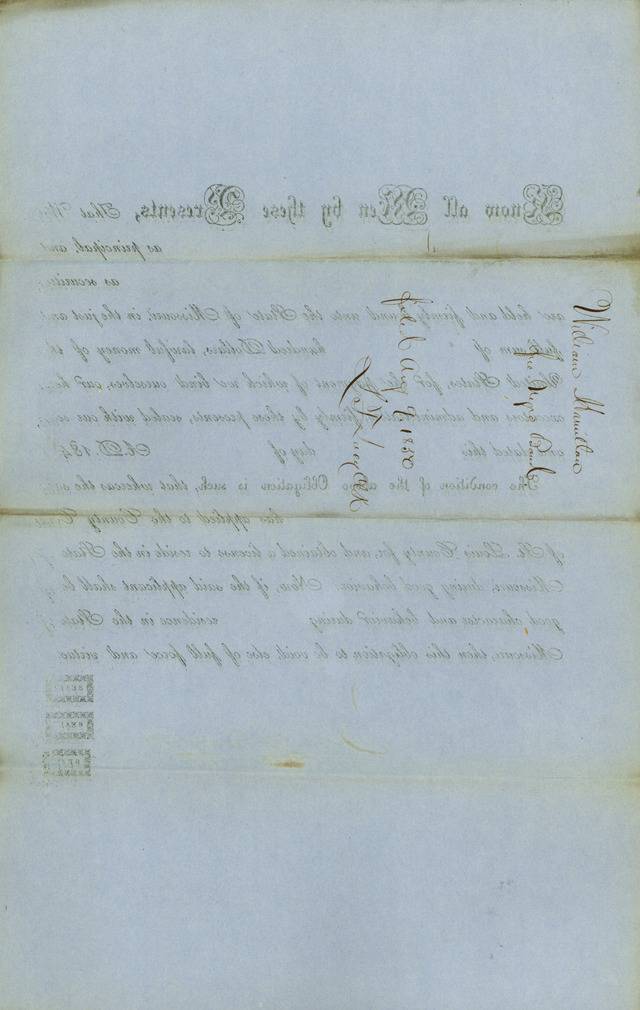 William Hamilton
Free Negro Bond
filed Aug 9 1850
Know all Men by these Presents, That We
as principal, and
as security
are held and firmly bound unto the State of Missouri, in the just and
full sum of hundred Dollars, lawful money of the
United States, for the payment of which we bind ourselves, our heirs
executors and administrators, firmly by these presents, sealed with our seals
and dated this day of A.D. 184
The condition of the above Obligation is such, that whereas the said
has applied to the County Court
of St. Louis County for, and obtained a license to reside in the State of
Missouri, during good behavior. Now, if the said applicant shall be of
good character and behavior during residence in the State of
Missouri, then this obligation to be void, else of full force and virtue
SEAL
SEAL
SEAL